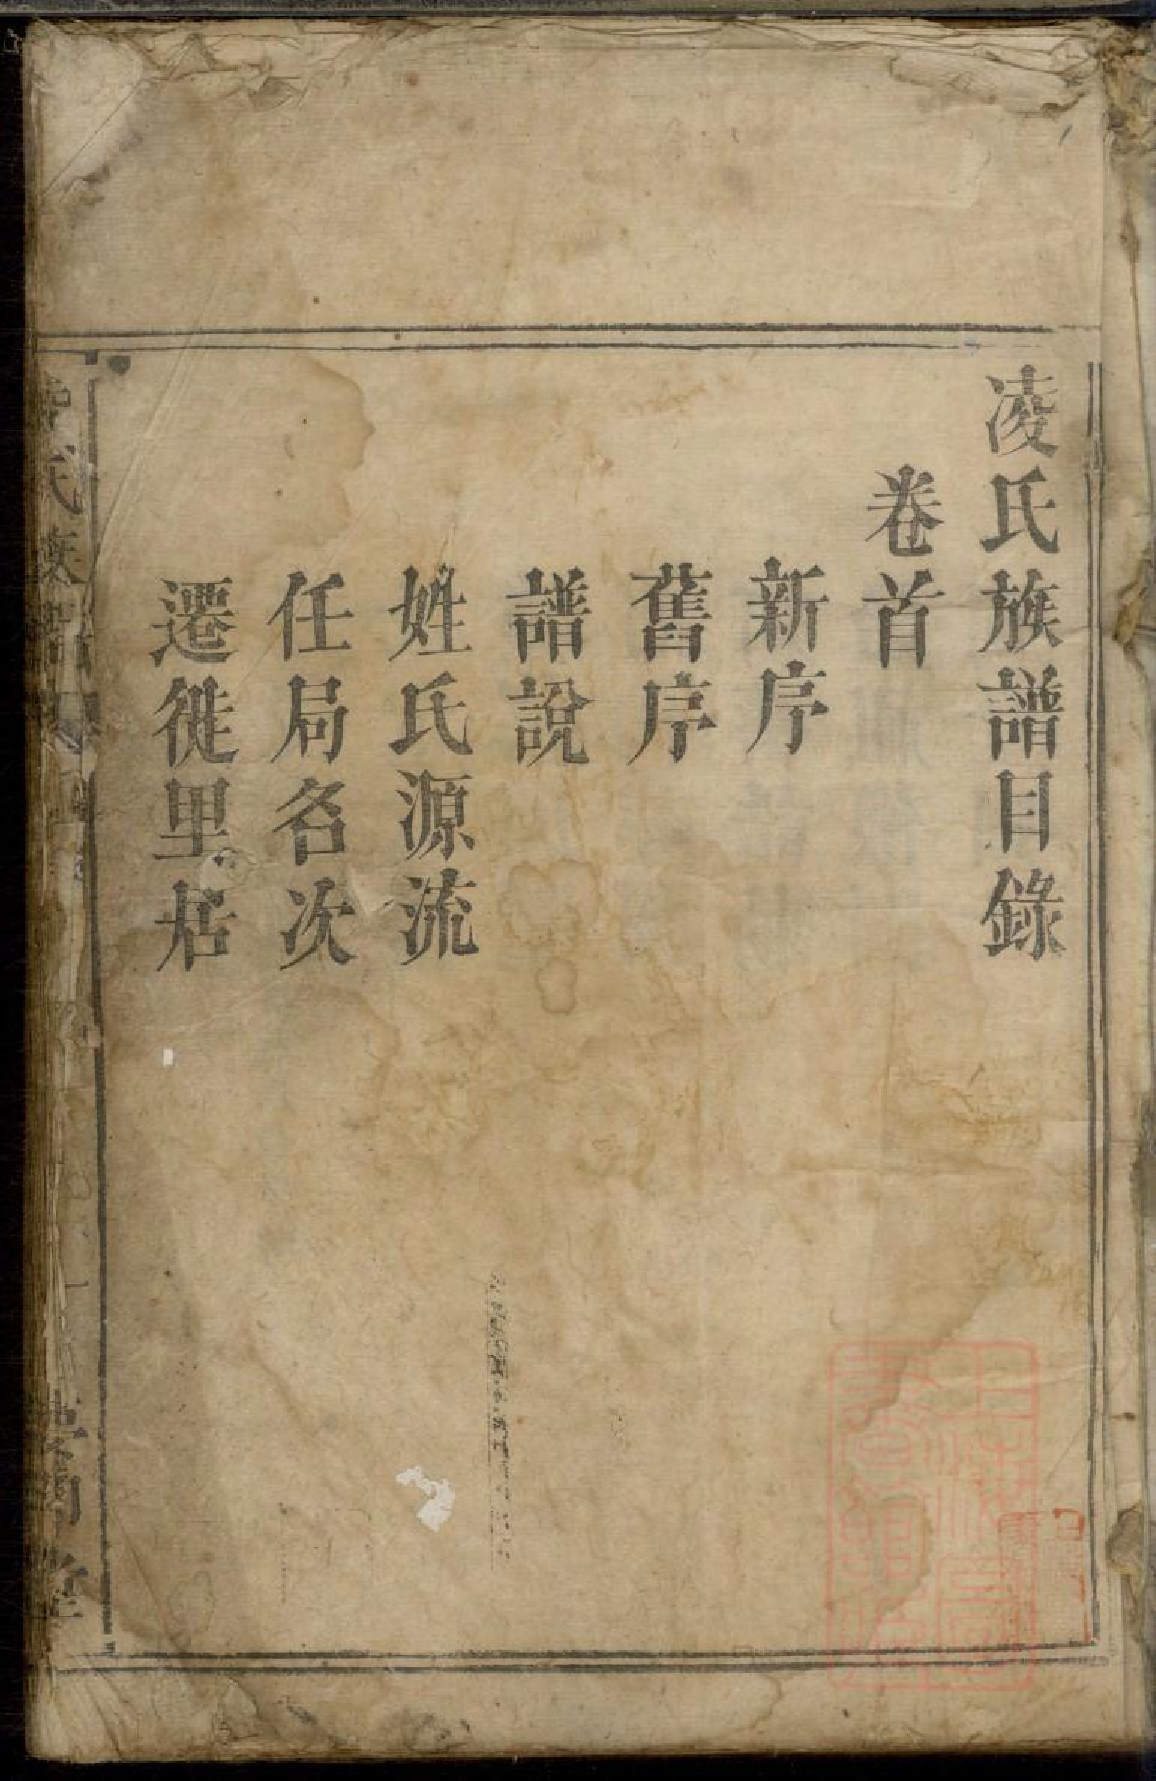 凌氏族譜目錄
卷首
新序
舊序
譜說
姓氏源流
任局名次
遷徙里居